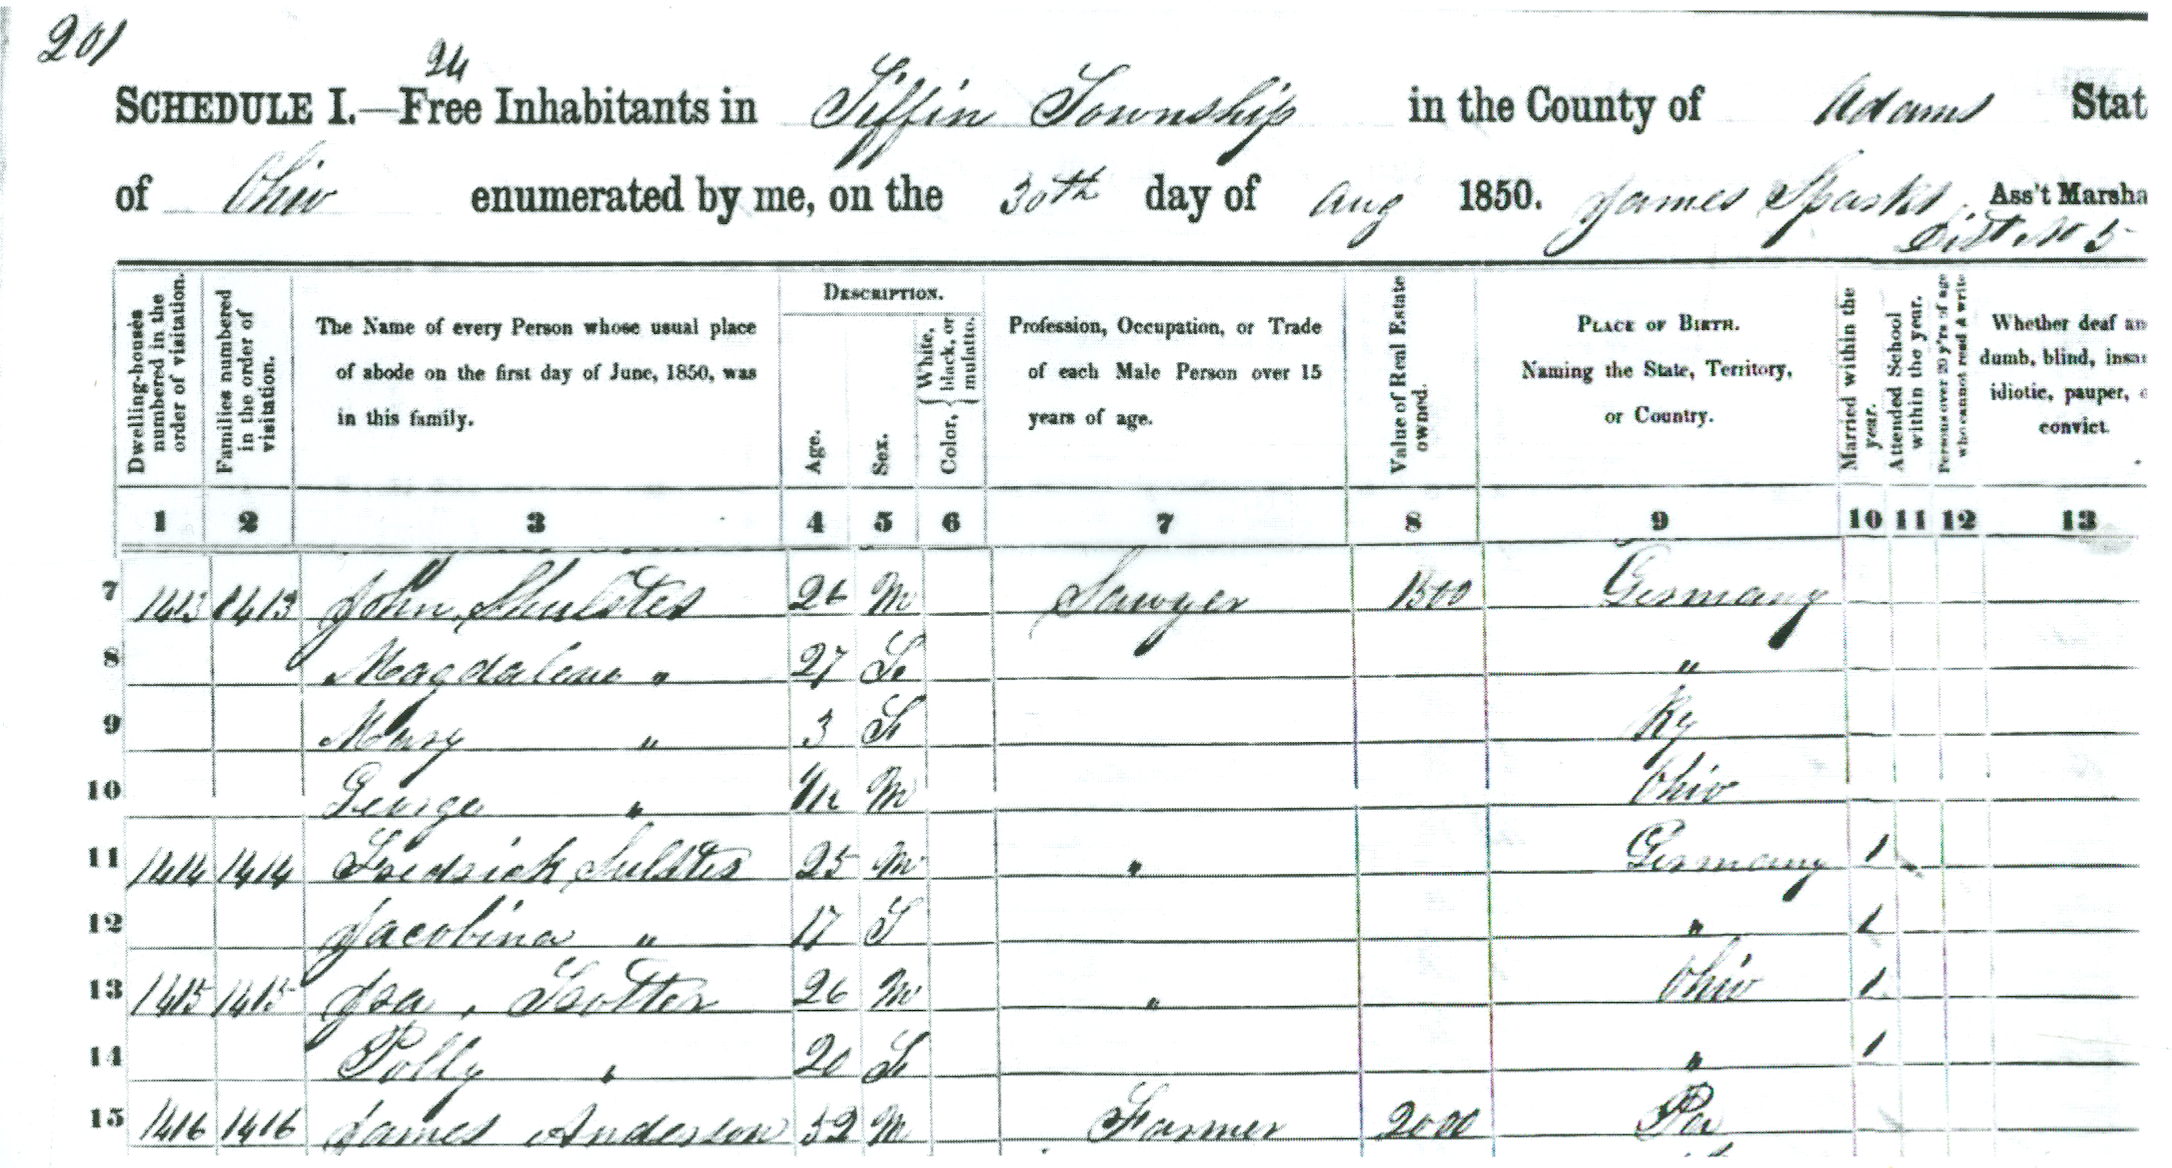 201
24
SCHEDULE I.—Free Inhabitants in Tiffin Township in the County of Adams Stat
of Ohio enumerated by me, on the 30th day of Aug 1850. James Sparks Ass't Marsha
Dist No 5
Dwelling-houses numbered in the order of visitation.
Families numbered in the order of visitation.
The Name of every Person whose usual place of abode on the first day of June, 1850, was in this family.
DESCRIPTION.
Age.
Sex.
Color, { White, black, or mulatto.
Profession, Occupation, or Trade of each Male Person over 15 years of age.
Value of Real Estate owned.
PLACE OF BIRTH. Naming the State, Territory, or Country.
Married within the year.
Attended School within the year.
Persons over 20 y'rs of age who cannot read & write
Whether deaf an dumb, blind, insa idiotic, pauper, o convict.
1 2 3 4 5 6 7 8 9 10 11 12 13
7 1413 1413 John Shulster 26 M Sawyer 1500 Germany
8 Magdalena " 27 F "
9 Mary " 3 F Ky
10 George " M Ohio
11 1414 1414 Fredrick Sulster 25 M " Germany 1
12 Jacobina " 17 F " 1
13 1415 1415 Isa Trotter 26 M " Ohio 1
14 Polly " 20 F " 1
15 1416 1416 James Anderson 52 M Farmer 2000 Pa